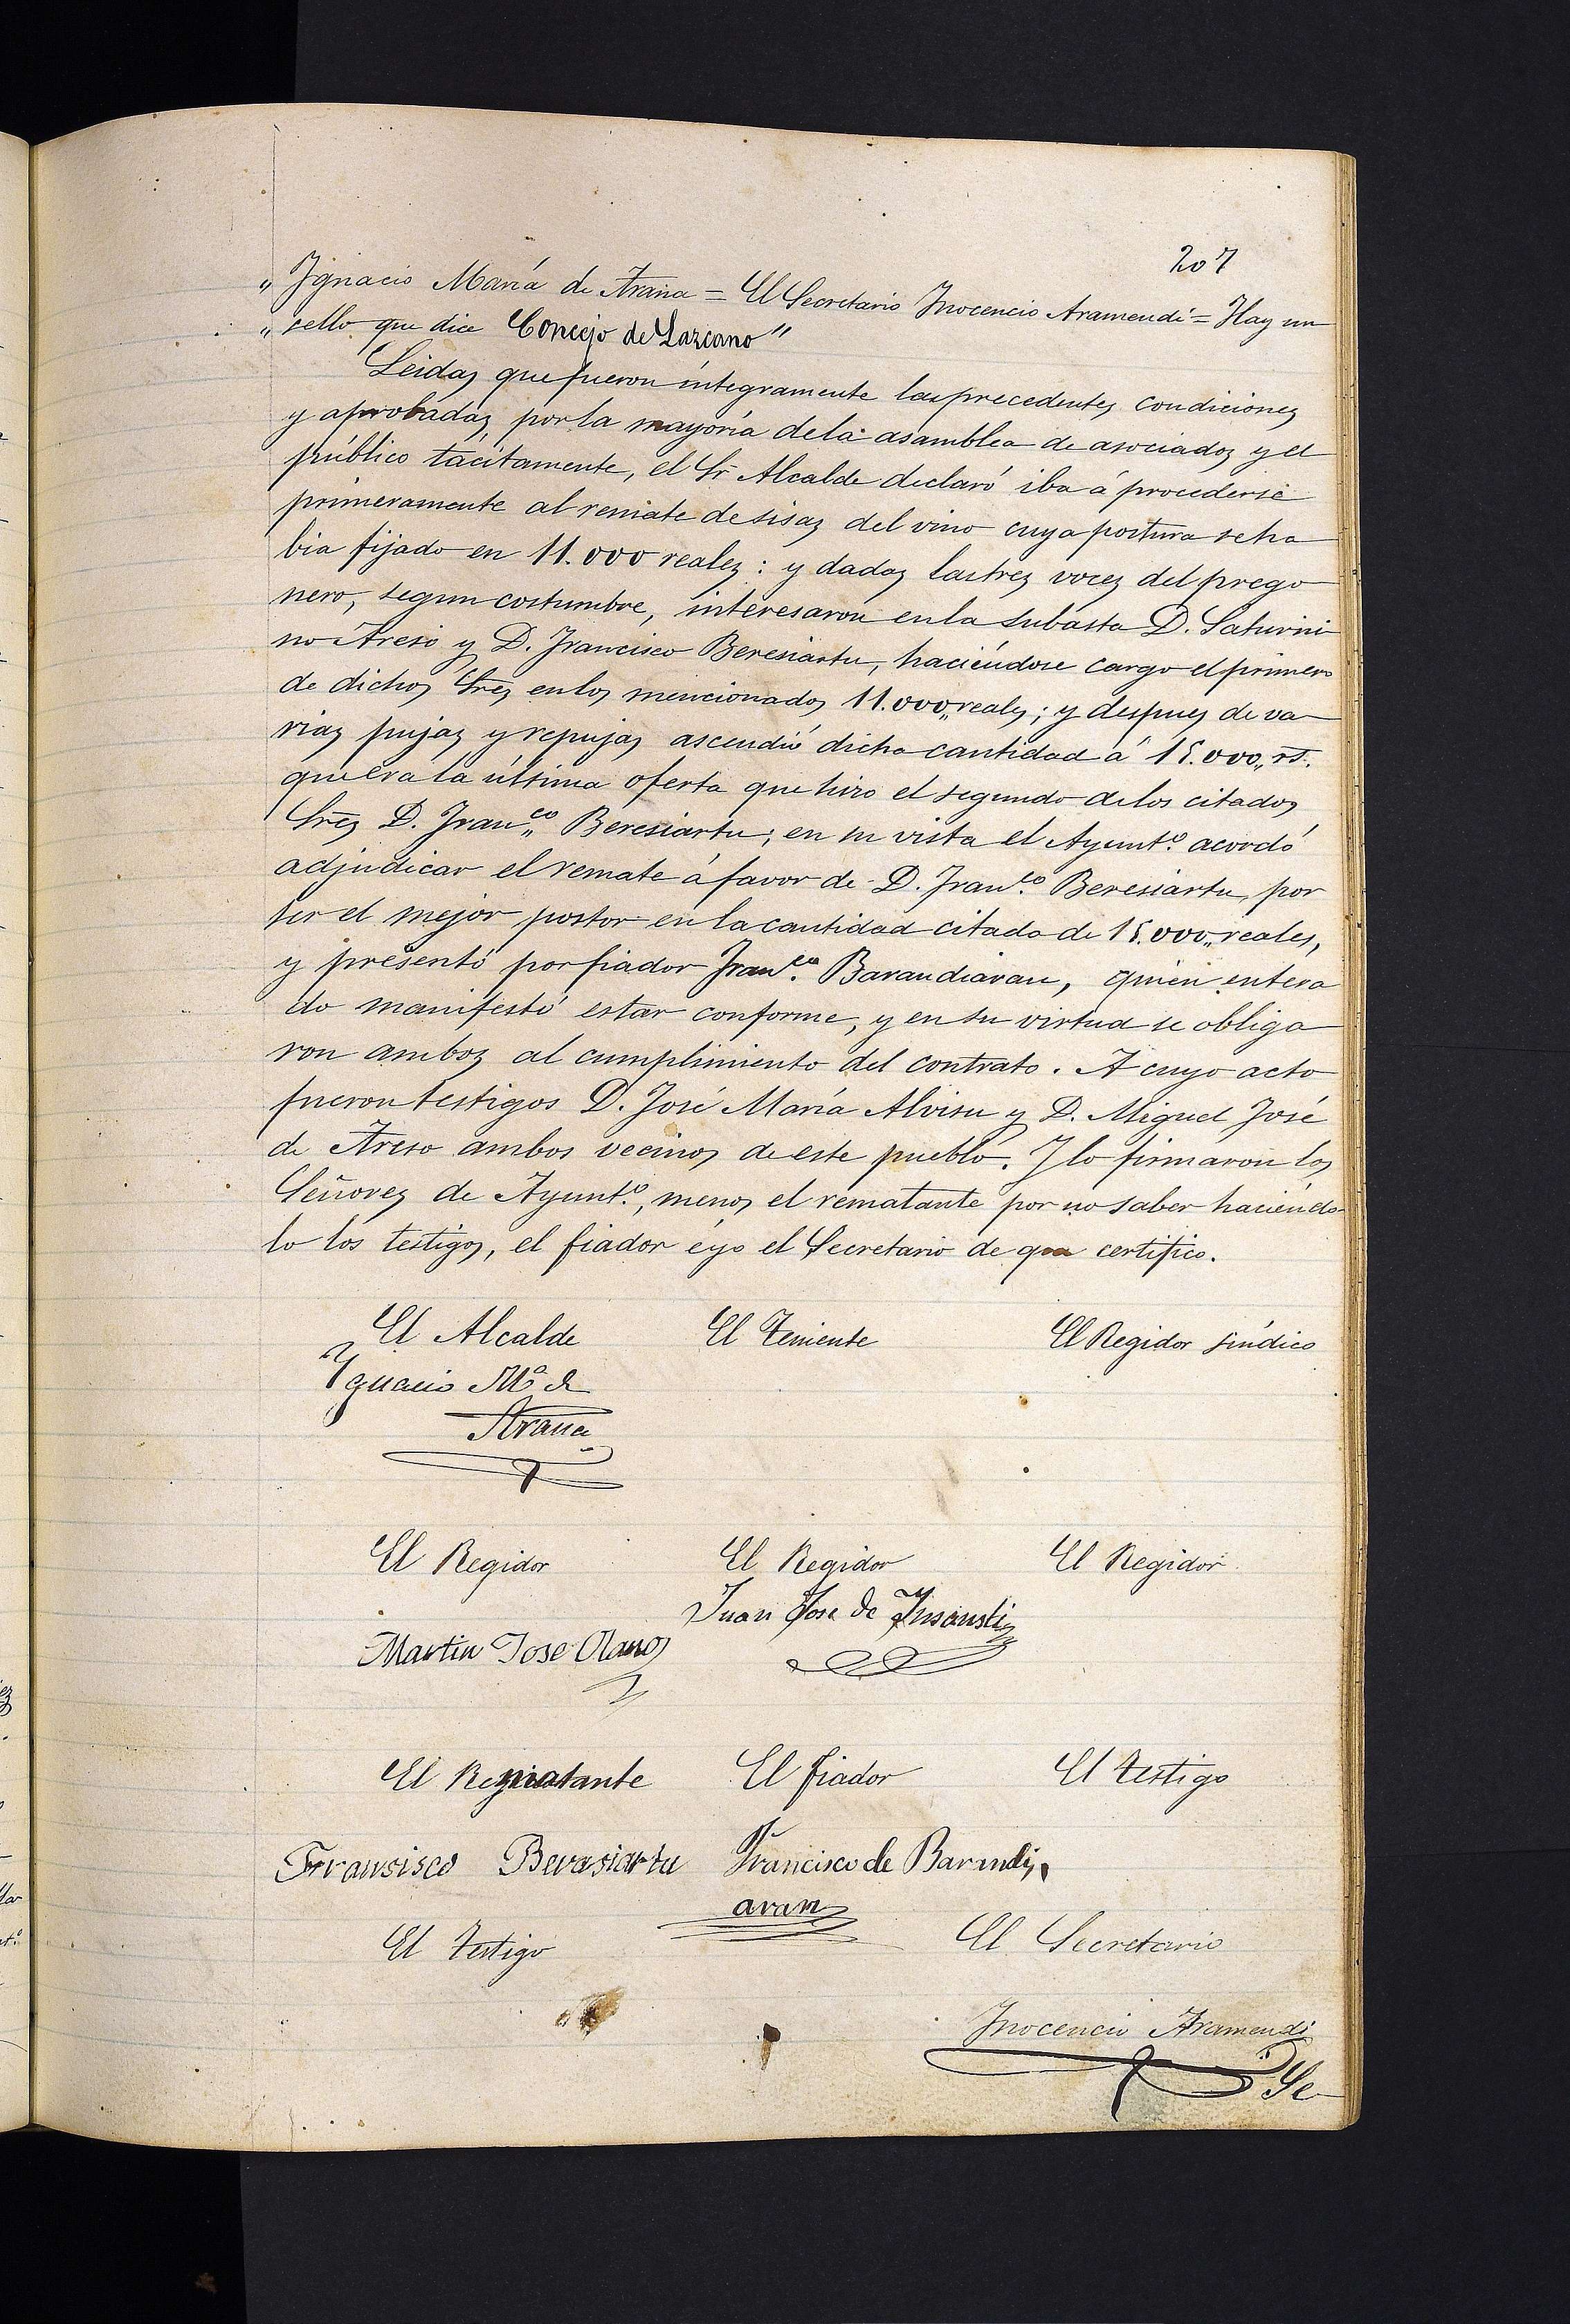 207
„ Ignacio María de Arana = El Secretario Inocencio Aramendi = Hay un
„ sello que dice Concejo de Lazcano"
Leidas que fueron íntegramente las precedentes condiciones
y aprobadas por la mayoría de la asamblea de asociados y el
público tácitamente, el Sr. Alcalde declaró iba á procederse
primeramente al remate de sisas del vino cuya postura se ha
bia fijado en 11.000 reales: y dadas las tres voces del prego
nero, segun costumbre, interesaron en la subasta D. Saturni
no Areso y D. Francisco Beresiartu, haciéndose cargo el primero
de dichos Sres en los mencionados 11.000„ reales; y despues de va
rias pujas y repujas ascendió dicha cantidad á 15.000„ rs.
que era la última oferta que hizo el segundo de los citados
Sres D. Franco„ Beresiartu; en su vista el Ayunto. acordó
adjudicar el remate á favor de D. Franco. Beresiartu, por
ser el mejor postor en la cantidad citada de 15.000„ reales,
y presentó por fiador Franco. Barandiaran, quien entera
do manifestó estar conforme, y en su virtud se obliga
ron ambos al cumplimiento del contrato. A cuyo acto
fueron testigos D. José María Alvisu y D. Miguel José
de Areso ambos vecinos de este pueblo. Y lo firmaron los
Señores de Ayunto., menos el rematante por no saber haciéndo
lo los testigos, el fiador é yo el Secretario de que certifico.
El Alcalde El Teniente El Regidor síndico
Ygnacio Ma de
Arana
El Regidor El Regidor El Regidor
Juan Jose de Insausti
Martin Jose Olano
El Rematante El fiador El testigo
Fransisco Berasiartu Francisco de Barandi
aran
El testigo El Secretario
Inocencio Aramendi
Se